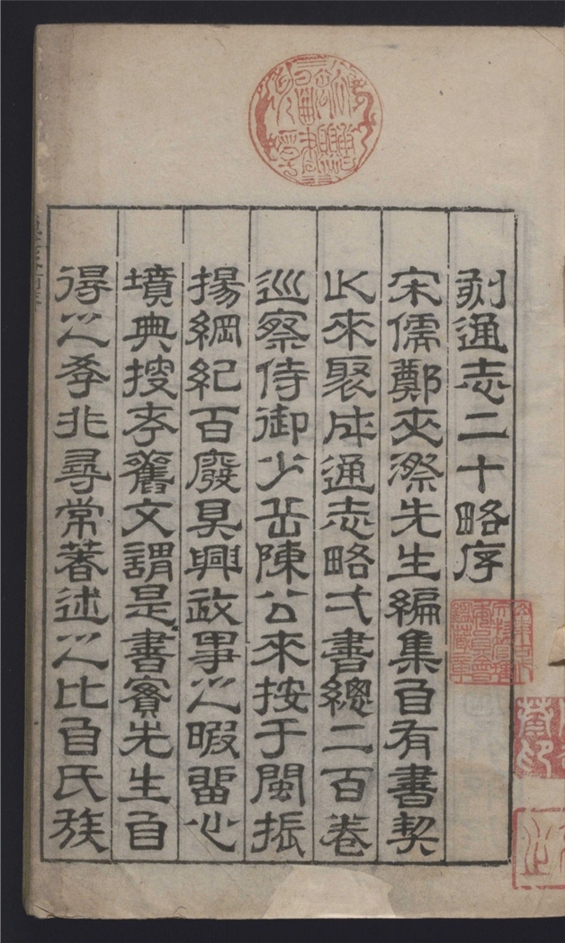 刻通志二十略序
宋儒鄭夾漈先生編集自有書契
以來聚成通志略弌書總二百卷
巡察侍御少岳陳公來按于閩振
揚綱紀百廢具興政事之暇畱心
墳典搜存舊文謂是書實先生自
得之斈非尋常著述之比自氏族